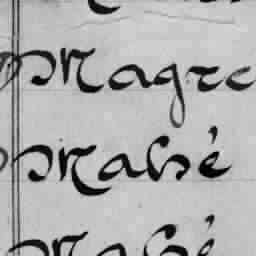 Magre
Mahé
Mahé